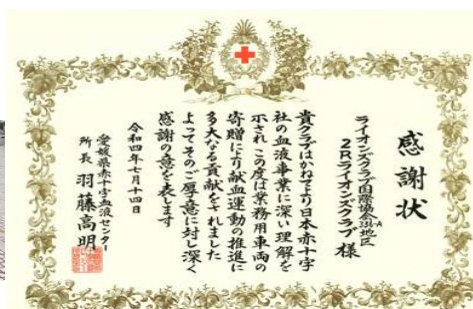 感謝状
ライオンズクラブ国際協会336-A地区
2Rライオンズクラブ 様
貴クラブはかねてより日本赤十字
社の血液事業に深い理解を
示されこの度は業務用車両の
寄贈により献血運動の推進に
多大なる貢献をされました
よってそのご厚意に対し深く
感謝の意を表します
令和四年七月十四日
愛媛県赤十字血液センター
所長 羽藤高明